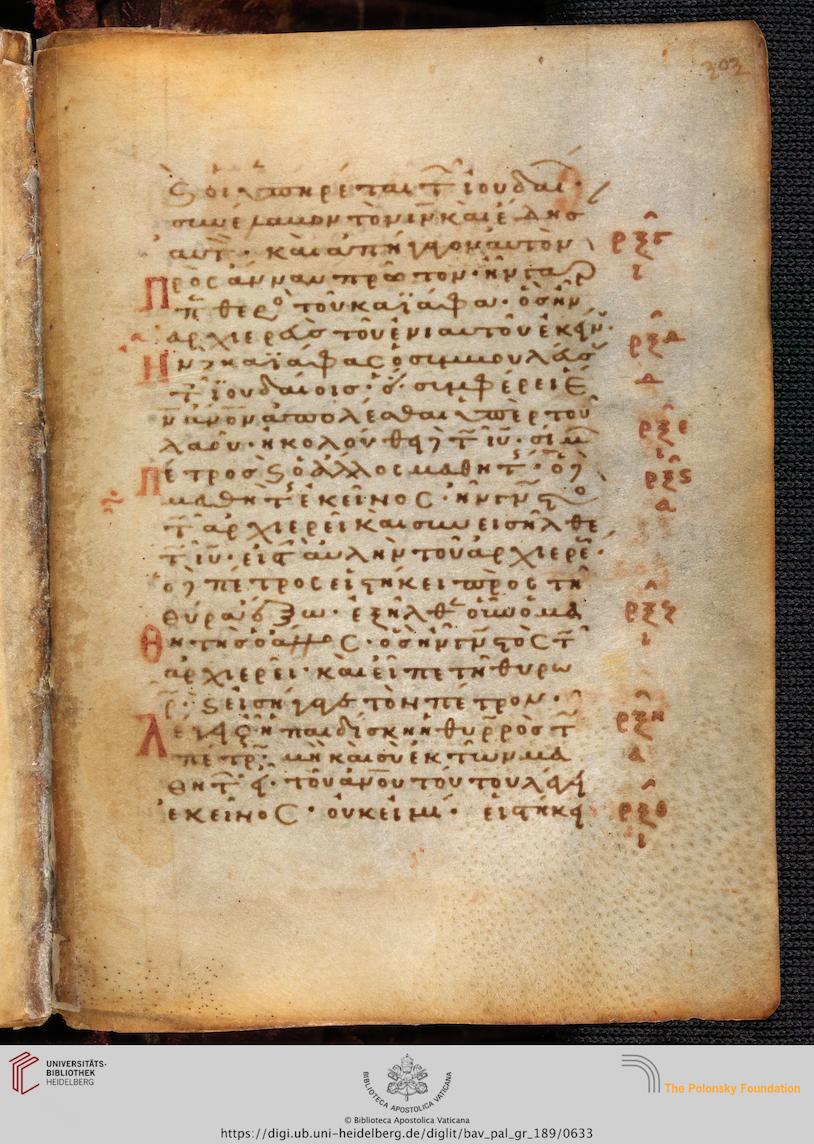 203
ϗ οἱ ὑπηρέται τ̅ ἰουδαί·
συνέλαβον τὸν ι̅ν̅ καὶ ἔδησ
αυτ̅· καὶ ἀπήγαγον αὐτὸν
ρξγ
ι
πρὸς ἄνναν πρῶτον· ἦν γὰρ
π̅θερὸ τοῦ καϊάφα· ὃς ἦν
ἀρχιερεὺς τοῦ ἐνιαυτοῦ ἐκείν·
ρξδ
δ
ἦν δὲ καϊάφας ὁ συμβουλεύσ
τ̅ ἰουδαίοις· ὅτι συμφέρει ἕ
να α̅ν̅ο̅ν̅ ἀπολέσθαι ὑπὲρ τοῦ
λαοῦ· ἠκολούθει δὲ τ̅ ι̅υ̅· σίμ
ρξε
ι
πέτρος ϗ ὁ ἄλλος μαθητ· ὁ δὲ
ρξς
α
μαθητ ἐκεῖνος· ἦν γνωστὸ
τ̅ ἀρχιερεῖ καὶ συνεισῆλθε
τ̅ ι̅υ̅· εἰς τ̅ αὐλὴν τοῦ ἀρχιερέ·
ὁ δὲ πέτρος εἱστήκει πρὸς τῆ
θύρα ἔξω· ἐξῆλθε οὖν ὁ μα
ρξζ
ι
θητὴς ὁ ἄλλος· ὃς ἦν γνωστὸς τ̅
ἀρχιερεῖ· καὶ εἶπε τῆ θυρω
ρ· ϗ εἰσήγαγε τὸν πέτρον·
λέγει οὖν ἡ παιδίσκη ἡ θυρρὸς τ̅
ρξη
α
πετρ· μὴ καὶ σὺ ἐκ τῶν μα
θητ εἶ· τοῦ α̅ν̅ο̅υ̅ τούτου λέγει
ἐκεῖνος· οὐκ εἰμί· εἱστήκει
ρξθ
ι
UNIVERSITÄTS-
BIBLIOTHEK
HEIDELBERG
BIBLIOTECA APOSTOLICA VATICANA
The Polonsky Foundation
© Biblioteca Apostolica Vaticana
https://digi.ub.uni-heidelberg.de/diglit/bav_pal_gr_189/0633